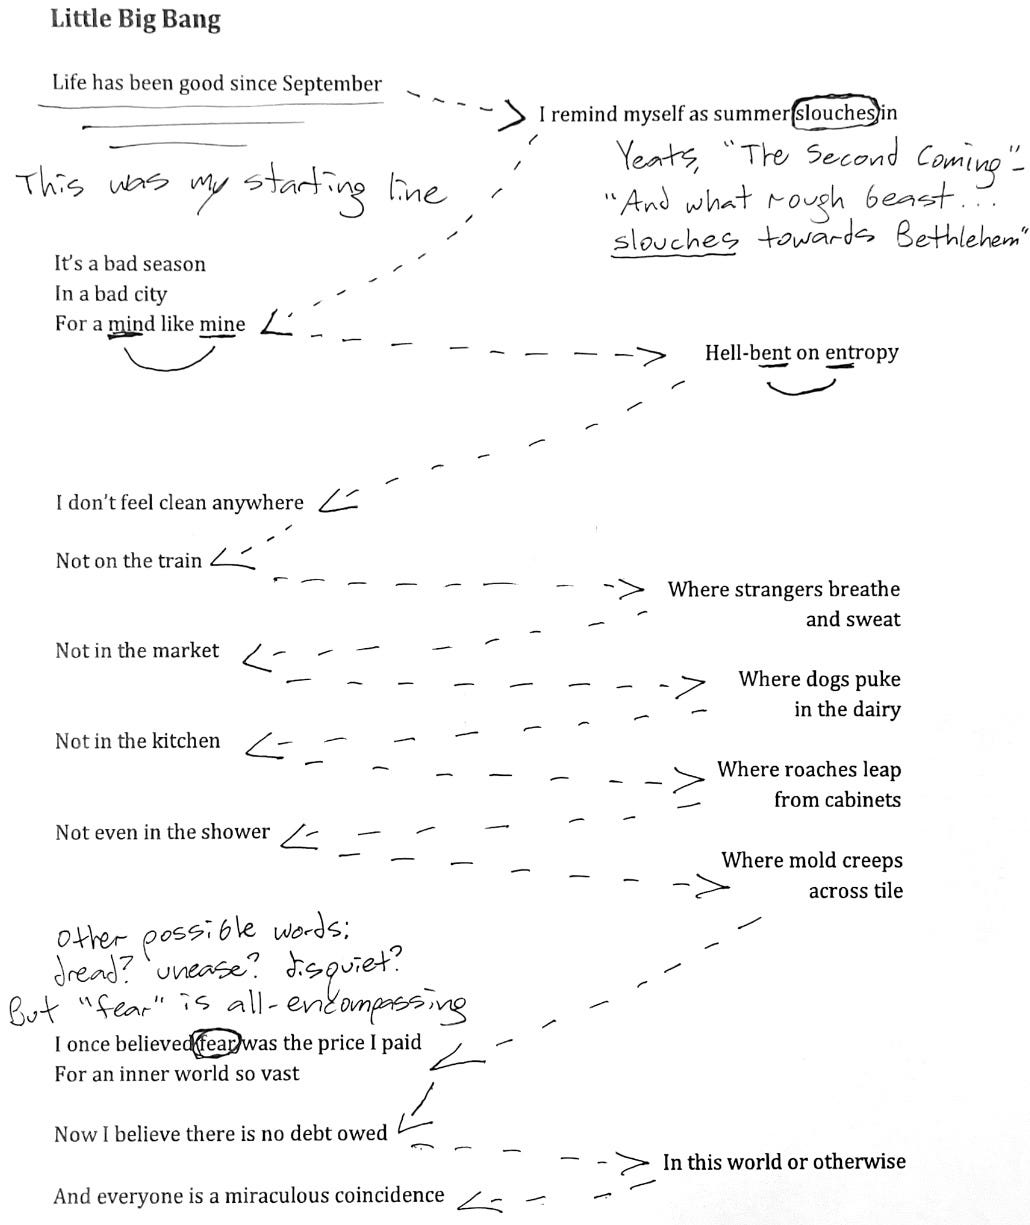 Little Big Bang
Life has been good since September
I remind myself as summer slouches in
This was my starting line
Yeats, "The Second Coming" -
"And what rough beast...
slouches towards Bethlehem"
It's a bad season
In a bad city
For a mind like mine
Hell-bent on entropy
I don't feel clean anywhere
Not on the train
Where strangers breathe
and sweat
Not in the market
Where dogs puke
in the dairy
Not in the kitchen
Where roaches leap
from cabinets
Not even in the shower
Where mold creeps
across tile
Other possible words:
dread? unease? disquiet?
But "fear" is all-encompassing
I once believed fear was the price I paid
For an inner world so vast
Now I believe there is no debt owed
In this world or otherwise
And everyone is a miraculous coincidence